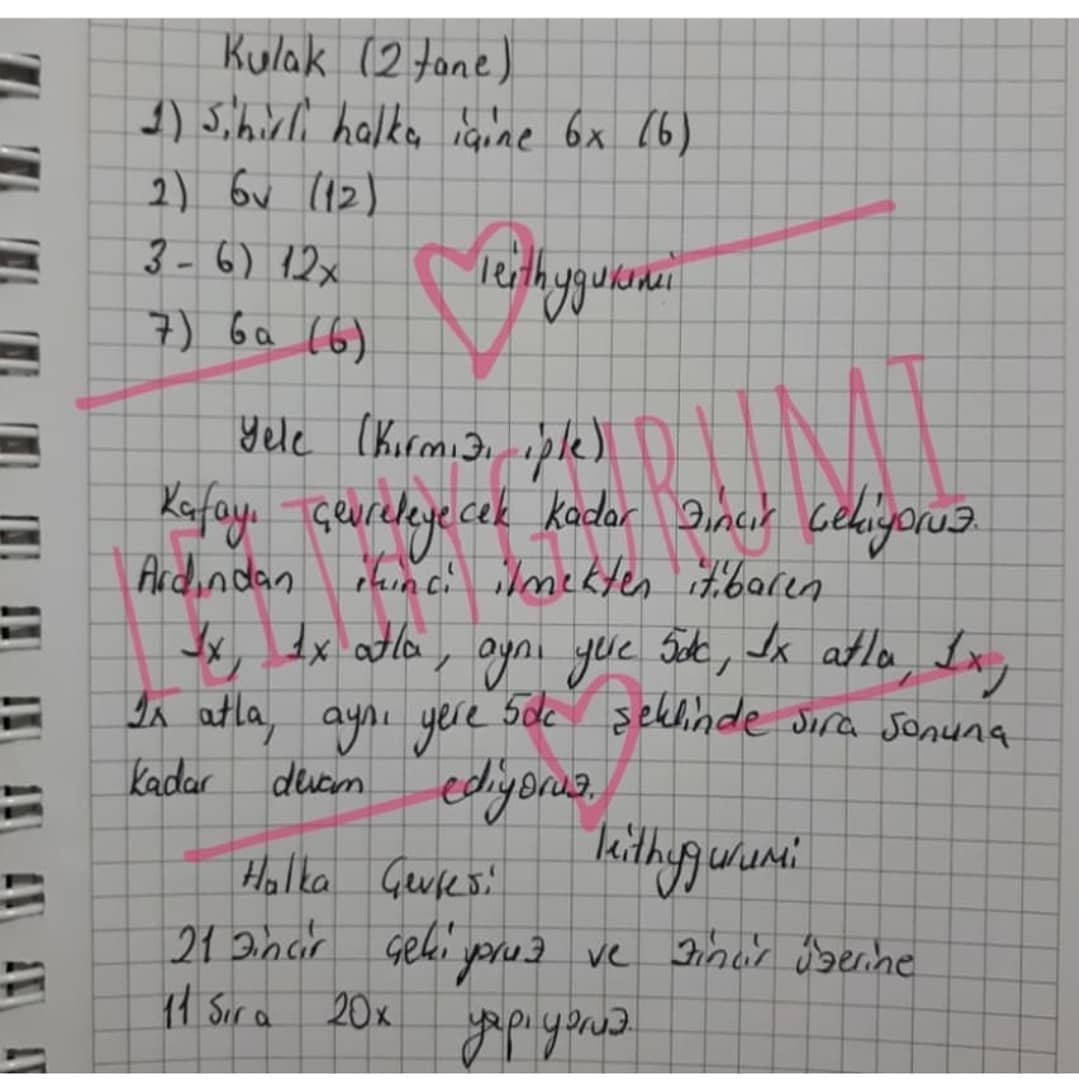 Kulak (2 tane)
1) Sihirli halka içine 6x (6)
2) 6v (12)
3-6) 12x
leithygurumi
7) 6a (6)
LEITHYGURUMI
Yele (Kırmızı iple)
Kafayı çevreleyecek kadar zincir çekiyoruz.
Ardından ikinci ilmekten itibaren
1x, 1x atla, aynı yere 5dc, 1x atla, 1x,
1x atla, aynı yere 5dc şeklinde sıra sonuna
kadar devam ediyoruz.
leithygurumi
Halka Çevresi
21 zincir çekiyoruz ve zincir üzerine
11 sıra 20x yapıyoruz.